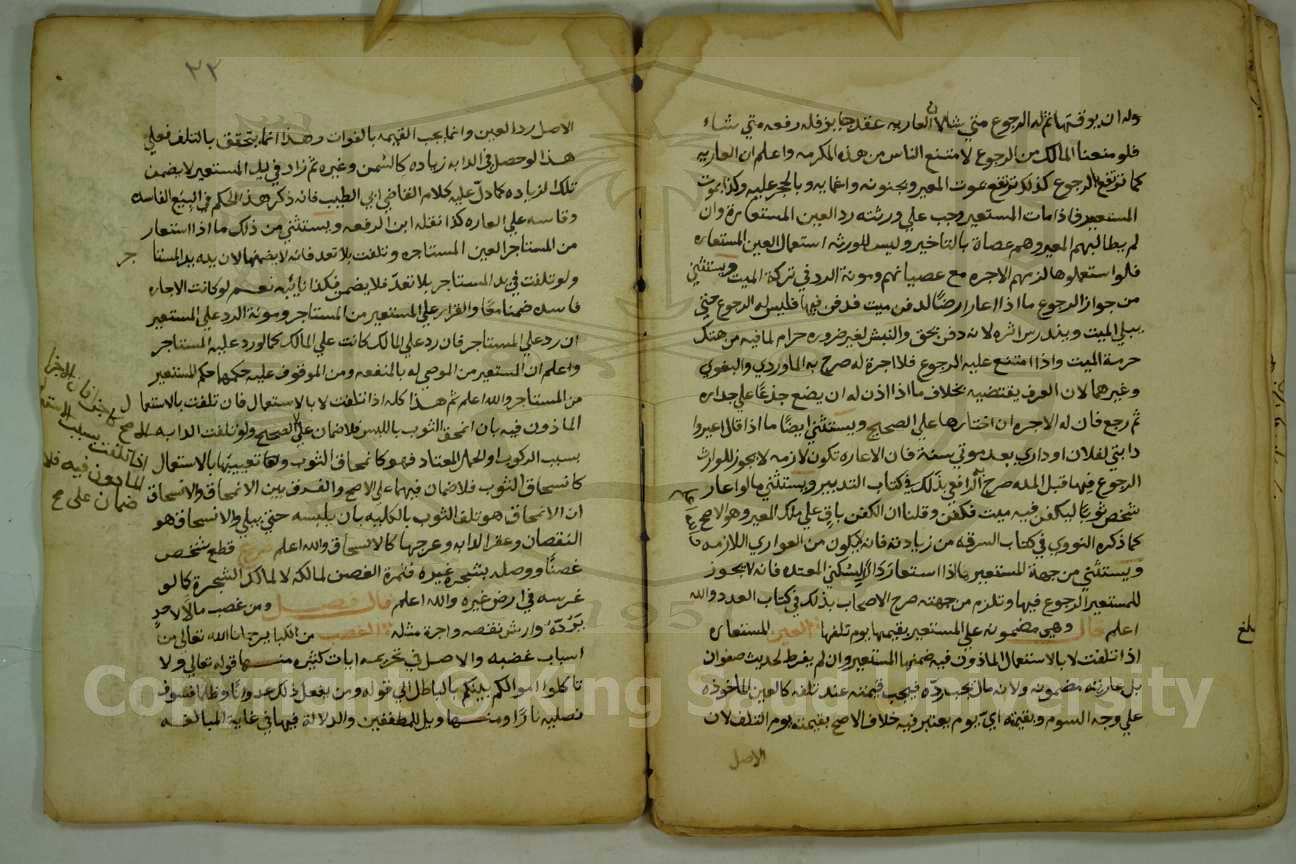 وله ان يوقتها ثم له الرجوع متي شا لان العاريه عقد جايز فله رفعه متي شاء
فلو منعنا المالك من الرجوع لامتنع الناس من هذه المكرمه واعلم ان العاريه
كما ترتفع بالرجوع كذلك ترتفع بموت المعير وبجنونه واغمايه وبالحجر عليه وكذا بموت
المستعير فاذا مات المستعير وجب علي ورثته رد العين المستعارة وان
لم يطالبهم المعير وهم عصاة بالتاخير وليس للورثه استعمال العين المستعاره
فلو استعملوها لزمهم الاجره مع عصيانهم ومونة الرد في تركة الميت ويستثني
من جواز الرجوع ما اذا اعار ارضا لدفن ميت فدفن فيها فليس له الرجوع حتي
يبلي الميت ويندرس اثره لانه دفن بحق والنبش لغير ضروره حرام لما فيه من هتك
حرمة الميت واذا امتنع عليه الرجوع فلا اجرة له صرح به الماوردي والبغوي
وغيرهما لان العرف يقتضيه بخلاف ما اذا اذن له ان يضع جذعًا علي جداره
ثم رجع فان له الاجره ان اختارها علي الصحيح ويستثني ايضًا ما اذا قال اعيروا
دابتي لفلان او داري بعد موتي سنة فان الاعاره تكون لازمه لا يجوز للوارث
الرجوع فيها قبل المده صرح الرافعي بذلك في كتاب التدبير ويستثني ما لو اعار
شخص ثوبا ليكفن فيه ميت فكفن وقلنا ان الكفن باق علي ملك المعير وهو الاصح
كما ذكره النووي في كتاب السرقه من زيادته فانه يكون من العواري اللازمه
ويستثني من جهة المستعير ما اذا استعار دارا لسكني المعتده فانه لا يجوز
للمستعير الرجوع فيها وتلزم من جهته صرح الاصحاب بذلك في كتاب العدد والله
اعلم قال وهي مضمونه علي المستعير بقيمتها يوم تلفها العين المستعاره
اذا تلفت لا بالاستعمال الماذون فيه ضمنها المستعير وان لم يفرط لحديث صفوان
بل عارية مضمونه ولانه مال يجب رده فيجب قيمته عند تلفه كالعين الماخوذه
علي وجه السوم وبقيمة اي يوم يعتبر فيه خلاف الاصح بقيمته يوم التلف لان
الاصل
بلغ
٢٢
الاصل رد العين وانما يجب القيمه بالفوات وهذا انما يتحقق بالتلف فعلي
هذا لو حصل في الدابه زياده كالسمن وغيره ثم زاد في يد المستعير لا يضمن
تلك الزياده كما دل عليه كلام القاضي ابي الطيب فانه ذكر هذا الحكم في البيع الفاسد
وقاسه علي العاره كذا نقله ابن الرفعه ويستثني من ذلك ما اذا استعار
من المستاجر العين المستاجره وتلفت بلا تعد فانه لا يضمنها لان يده يد المستاجر
ولو تلفت في يد المستاجر بلا تعدّ فلا يضمن فكذا نايبه نعم لو كانت الاجاره
فاسده ضمنا معًا والقرار علي المستعير من المستاجر ومونة الرد علي المستعير
ان رد علي المستاجر فان رد علي المالك كانت علي المالك كما لو رد عليه المستاجر
واعلم ان المستعير من الموصي له بالمنفعه ومن الموقوف عليه حكمها حكم المستعير
من المستاجر والله اعلم ثم هذا كله اذا تلفت لا بالاستعمال فان تلفت بالاستعمال
الماذون فيه بان انمحق الثوب باللبس فلا ضمان علي الصحيح ولو تلفت الدابه
بسبب الركوب او الحمل المعتاد فهو كانمحاق الثوب واما تعييبها بالاستعمال
كانسحاق الثوب فلا ضمان فيهما علي الاصح والفرق بين الانمحاق والانسحاق
ان الانمحاق هو تلف الثوب بالكليه بان يلبسه حتي يبلي والانسحاق هو
النقصان وعقر الدابه وعرجها كالانسحاق والله اعلم فرع قطع شخص
غصنًا ووصله بشجرة غيره فثمرة الغصن لمالكه لا لمالك الشجرة كما لو
غرسه في ارض غيره والله اعلم قال فصل ومن غصب مالًا لاحدٍ
بردّه وارش نقصه واجرة مثله الغصب من الكباير اجارنا الله تعالي من
اسباب غضبه والاصل في تحريمه ايات كثيره منها قوله تعالي ولا
تاكلوا اموالكم بينكم بالباطل الي قوله ومن يفعل ذلك عدوانا وظلما فسوف
نصليه نارًا ومنها ويل للمطففين والدلالة فيها في غاية المبالغه
اذا تلفت بسبب
الماذون فيه فلا
ضمان علي
Copyright © King Saud University
195